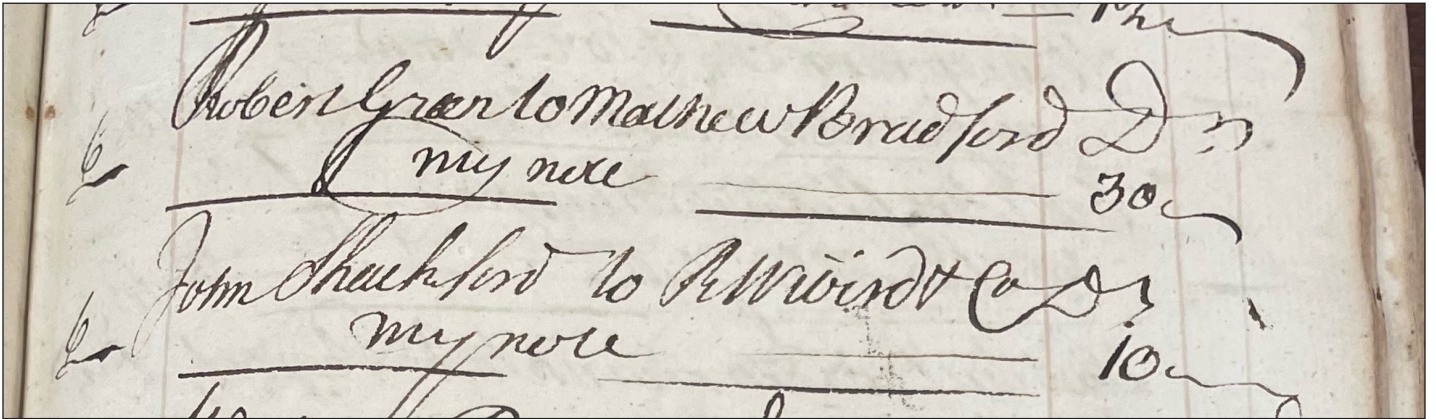 Robert Green to Mathew Bradford Dr
my note 30
John Shackford to R Wivird & Co Dr
my note 10